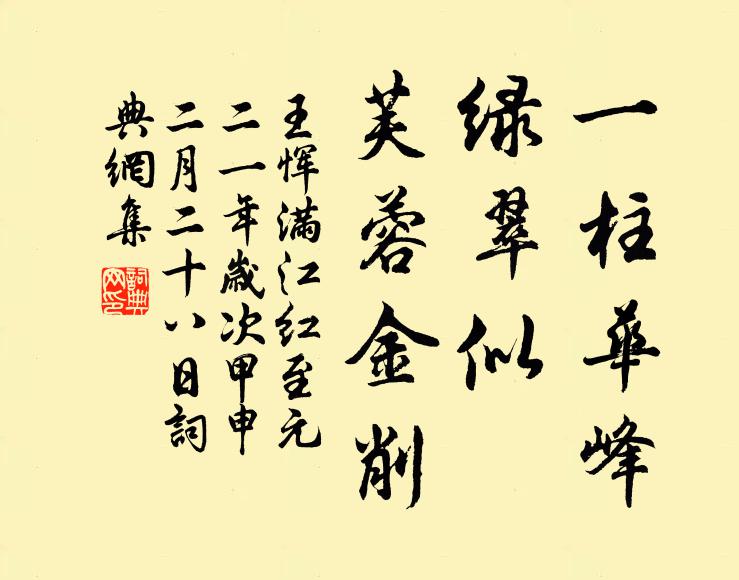 一柱华峰
绿翠似
芙蓉金削
王恽满江红至元
二一年岁次甲申
二月二十八日词
典網集
詞典
网印